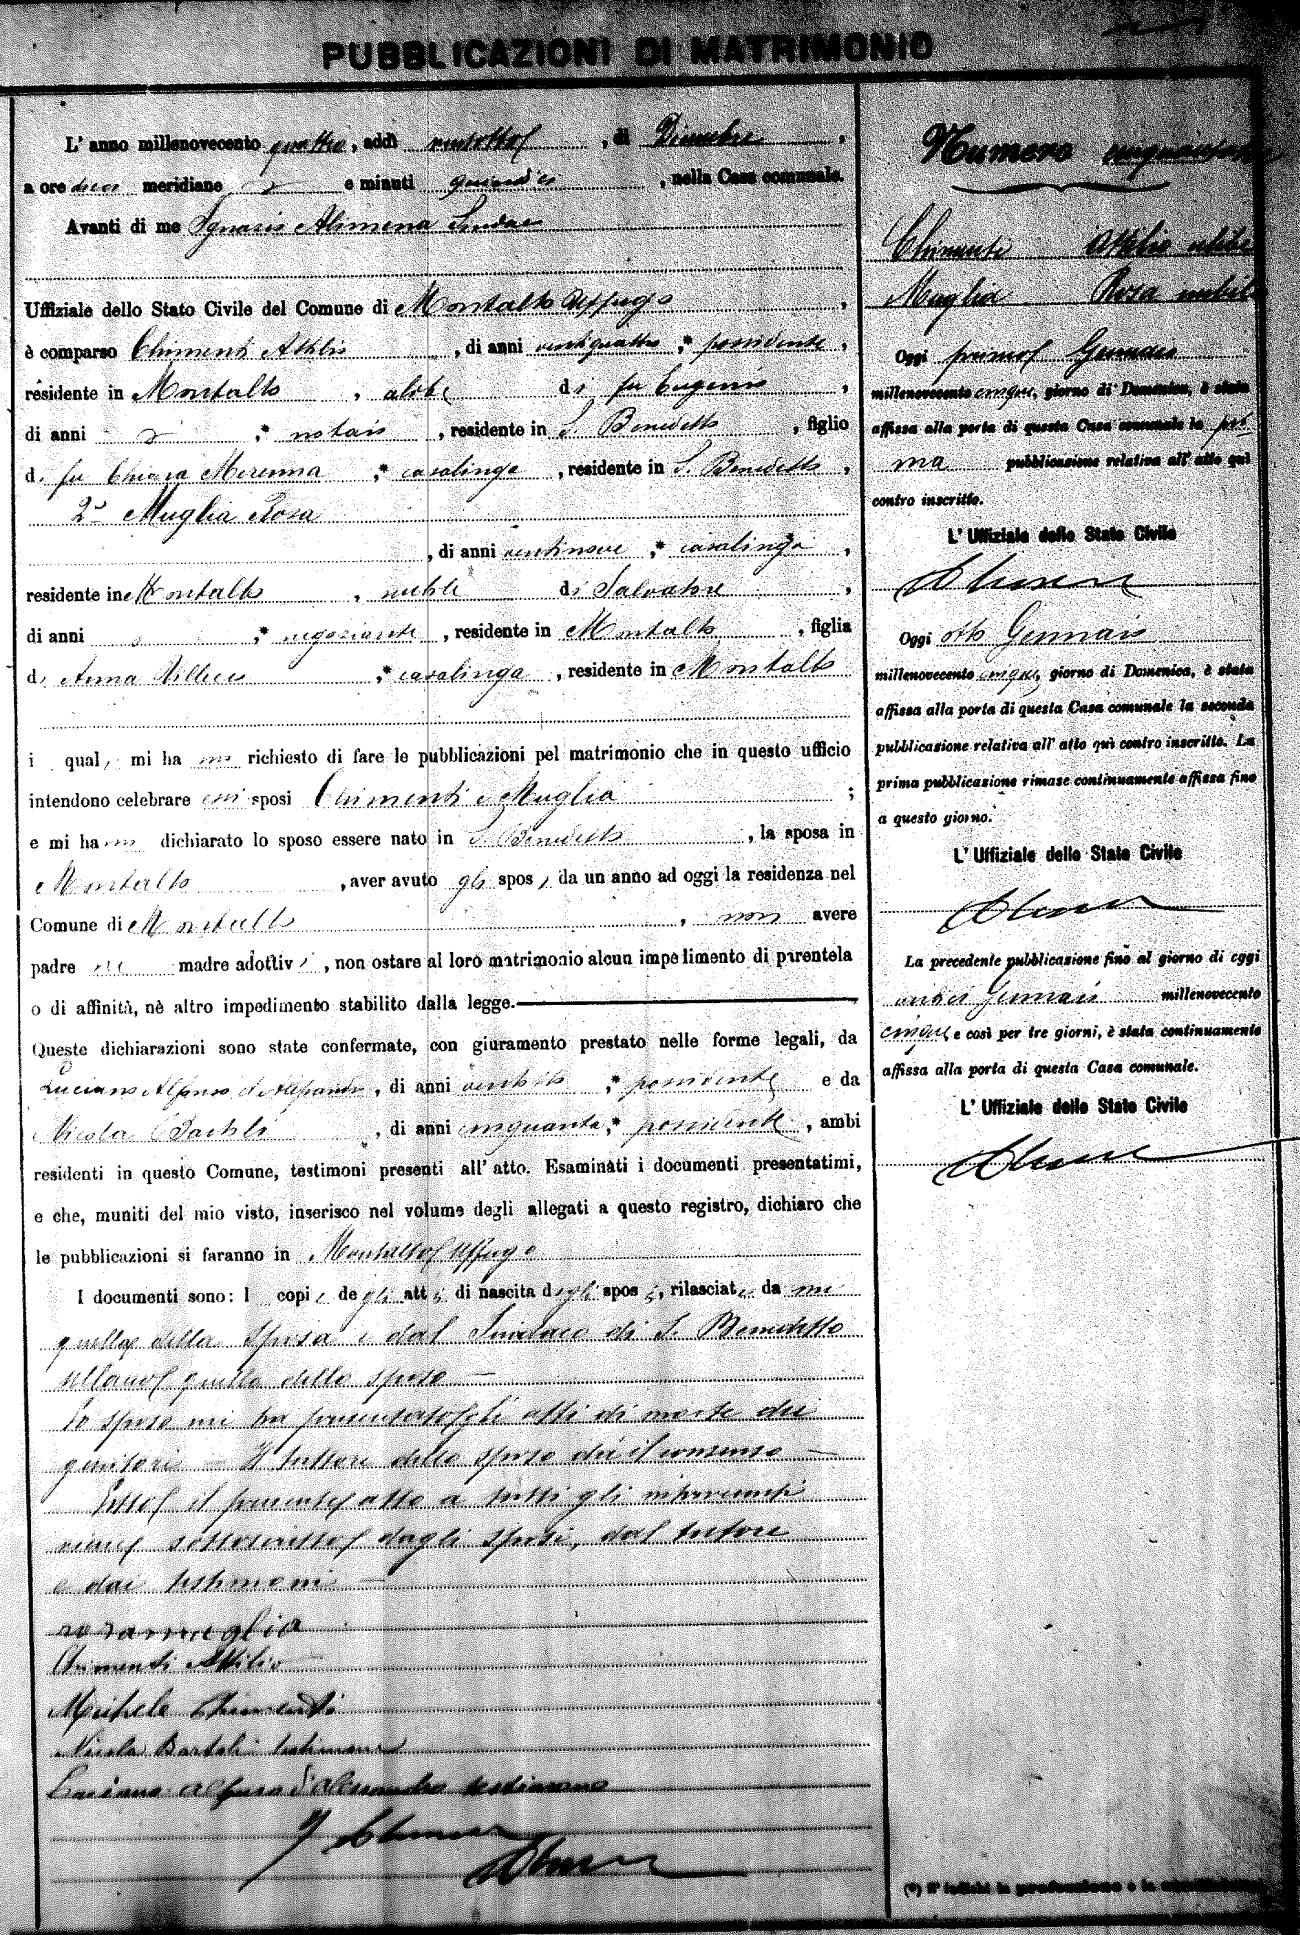 PUBBLICAZIONI DI MATRIMONIO
L' anno millenovecento quattro, addì ventotto, di Dicembre,
a ore dieci meridiane e minuti quindici, nella Casa comunale.
Avanti di me Ignazio Alimena Sindaco
Uffiziale dello Stato Civile del Comune di Montalto Uffugo,
è comparso Chimenti Attilio, di anni ventiquattro,* possidente,
residente in Montalto, celibe di fu Eugenio,
di anni ,* notaio, residente in S. Benedetto, figlio
di fu Chiara Merenna,* casalinga, residente in S. Benedetto,
2° Muglia Rosa
, di anni ventinove,* casalinga,
residente in Montalto, nubile di Salvatore,
di anni ,* negoziante, residente in Montalto, figlia
di Anna,* casalinga, residente in Montalto
i quali mi hanno richiesto di fare le pubblicazioni pel matrimonio che in questo ufficio
intendono celebrare essi sposi Chimenti e Muglia;
e mi hanno dichiarato lo sposo essere nato in S. Benedetto, la sposa in
Montalto, aver avuto gli sposi, da un anno ad oggi la residenza nel
Comune di Montalto, non avere
padre nè madre adottivi, non ostare al loro matrimonio alcun impedimento di parentela
o di affinità, nè altro impedimento stabilito dalla legge.
Queste dichiarazioni sono state confermate, con giuramento prestato nelle forme legali, da
Luciano Alfonso d'Alessandro, di anni ventotto,* possidente e da
Nicola Bartoli, di anni cinquanta,* possidente, ambi
residenti in questo Comune, testimoni presenti all' atto. Esaminati i documenti presentatimi,
e che, muniti del mio visto, inserisco nel volume degli allegati a questo registro, dichiaro che
le pubblicazioni si faranno in Montalto Uffugo
I documenti sono: le copie degli atti di nascita degli sposi, rilasciate da me
quella della sposa e dal Sindaco di S. Benedetto
Ullano quella dello sposo —
Lo sposo mi ha presentato gli atti di morte dei
genitori — Il tutore dello sposo diè il consenso —
Letto il presente atto a tutti gli intervenuti
viene sottoscritto dagli sposi, dal tutore
e dai testimoni —
rosa muglia
Chimenti Attilio
Michele Chimenti
Nicola Bartoli testimone
Luciano Alfonso d'Alessandro testimone
Numero
Chimenti Attilio celibe
Muglia Rosa nubile
Oggi primo Gennaio
millenovecento cinque, giorno di Domenica, è stata
affissa alla porta di questa Casa comunale la pri-
ma pubblicazione relativa all' atto quì
contro inscritto.
L' Uffiziale dello Stato Civile
Oggi otto Gennaio
millenovecento cinque, giorno di Domenica, è stata
affissa alla porta di questa Casa comunale la seconda
pubblicazione relativa all' atto quì contro inscritto. La
prima pubblicazione rimase continuamente affissa fino
a questo giorno.
L' Uffiziale dello Stato Civile
La precedente pubblicazione fino al giorno di oggi
undici Gennaio millenovecento
cinque e così per tre giorni, è stata continuamente
affissa alla porta di questa Casa comunale.
L' Uffiziale dello Stato Civile